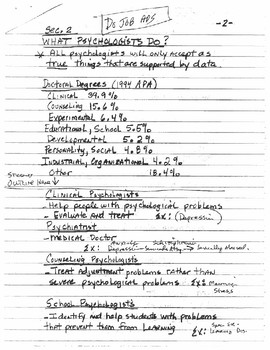 Do JOB APS
-2-
Sec. 2
WHAT PSYCHOLOGISTS DO?
* ALL psychologists will only accept as
true things that are supported by data.
Doctoral Degrees (1994 APA)
Clinical 39.9%
Counseling 15.6%
Experimental 6.4%
Educational, School 5.5%
Developmental 5.2%
Personality, Social 4.8%
Industrial, Organizational 4.2%
Other 18.4%
Outline
Clinical Psychologists
- Help people with psychological problems
- Evaluate and treat Ex: (Depression)
Psychiatrist
- Medical Doctor
Ex:
Counseling Psychologists
- Treat Adjustment problems rather than
severe psychological problems Ex: Marriage
Stress
School Psychologists
- Identify and help students with problems
that prevent them from learning Ex:
Learning Dis.